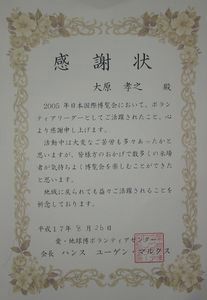 感謝状
大原 孝之 殿
2005年日本国際博覧会において、ボラン
ティアリーダーとしてご活躍されたこと、心
より感謝申し上げます。
活動中は大変なご苦労も多々あったかと
思いますが、皆様方のおかげで数多くの来場
者が気持ちよく博覧会を楽しむことができた
と思います。
地域に戻られても益々ご活躍されることを
祈念しております。
平成17年 8月26日
愛・地球博ボランティアセンター
会長 ハンス ユーゲン・マルクス